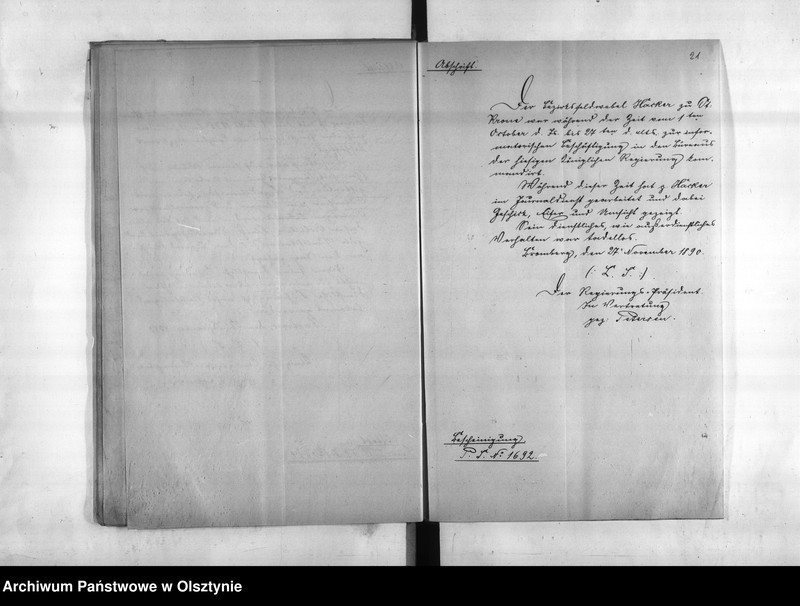 21
Abschrift
Der Bezirksfeldwebel Häcker zu Dt.
Krone war während der Zeit vom 1ten
October d. Js. bis 27ten d. Mts. zur infor-
matorischen Beschäftigung in den Bureaus
der hiesigen Königlichen Regierung kom-
mandirt.
Während dieser Zeit hat p. Häcker
im Journaldienst gearbeitet und dabei
Geschick, Eifer und Umsicht gezeigt.
Sein dienstliches, wie außerdienstliches
Verhalten war tadellos.
Bromberg, den 27. November 1890.
(: L. S. :)
Der Regierungs-Präsident.
In Vertretung
gez. Petersen.
Bescheinigung
P. J. No 1692.
Archiwum Państwowe w Olsztynie